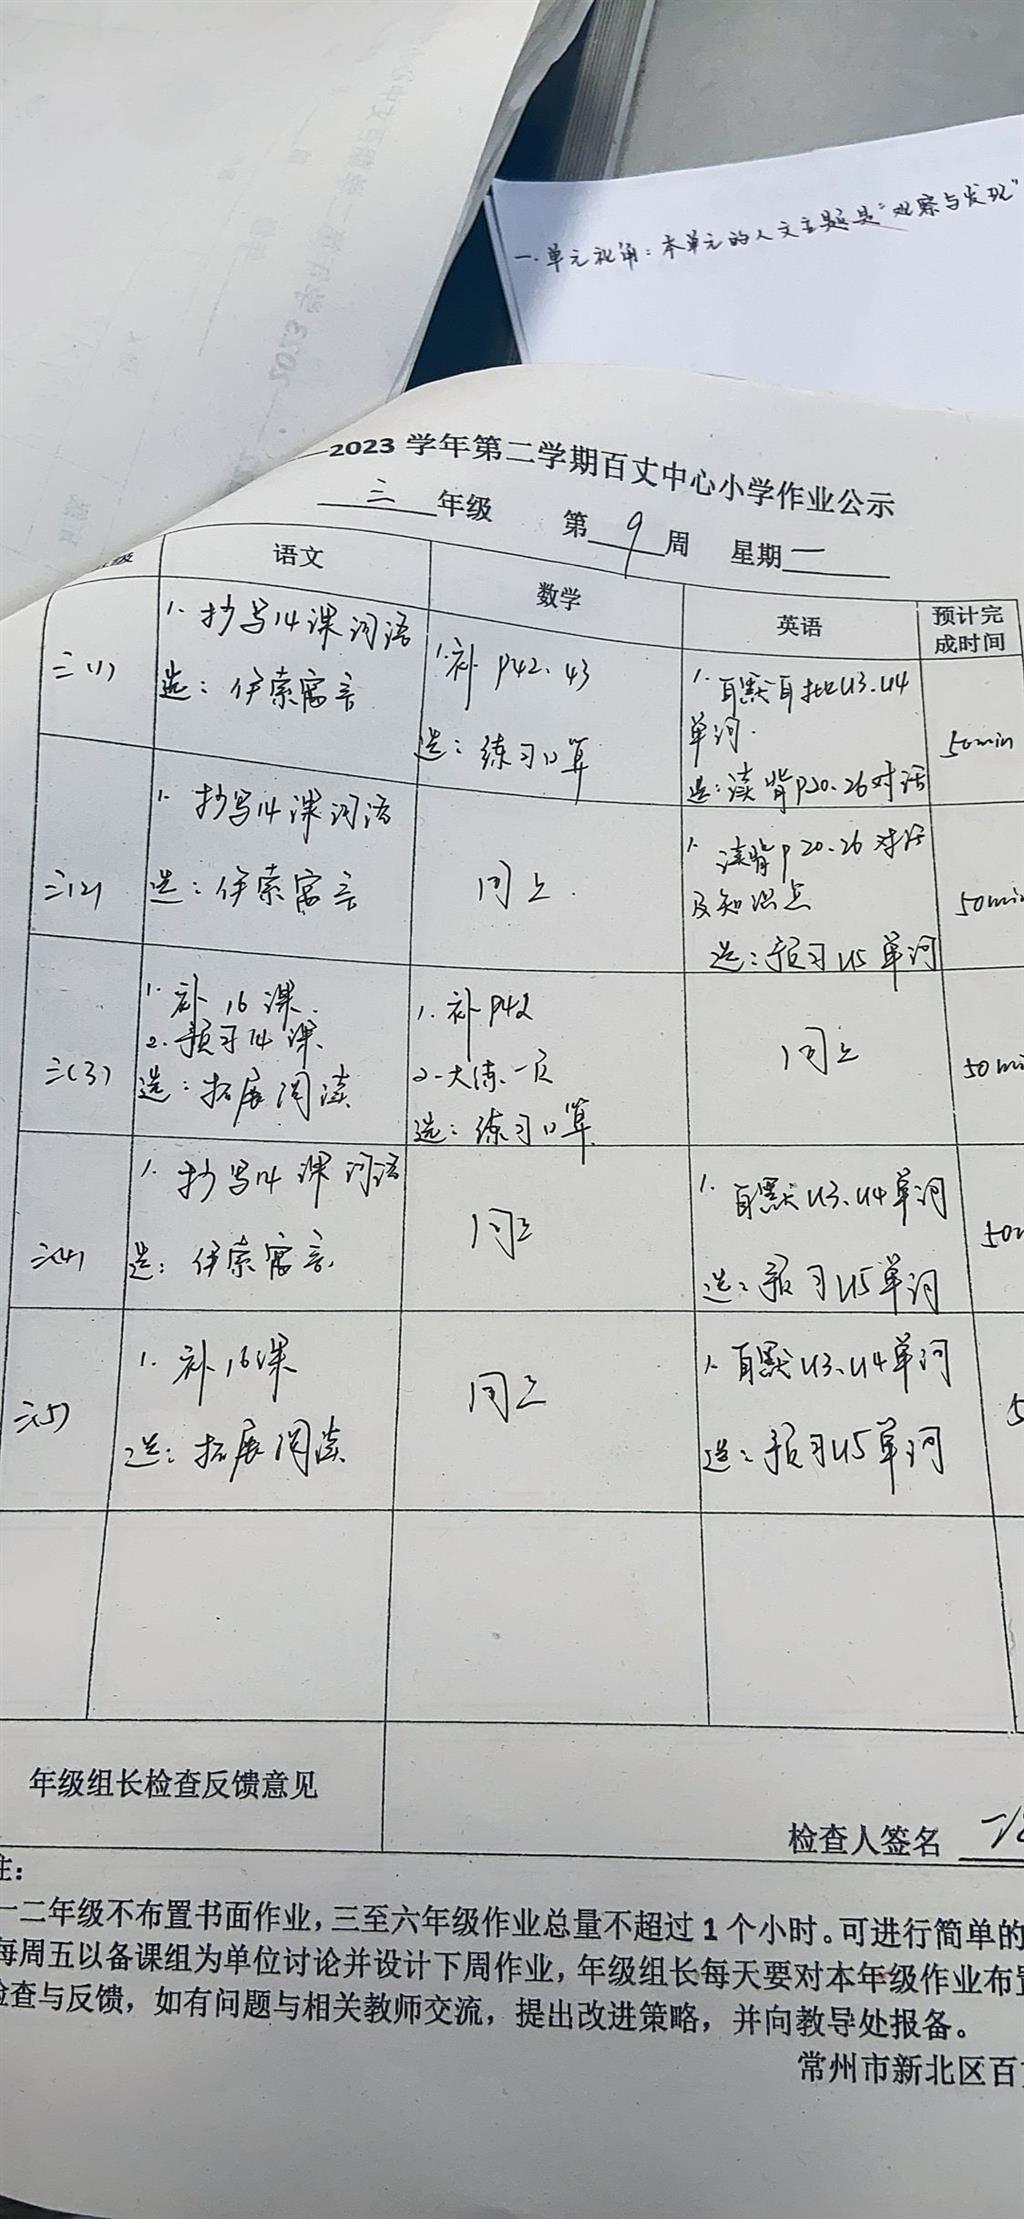 一.单元视角：本单元的人文主题是“观察与发现”
2023 学年第二学期百丈中心小学作业公示
三 年级 第 9 周 星期 一
级 语文 数学 英语 预计完
成时间
三(1)
1. 抄写14课词语
选：伊索寓言
1.补 P42、43
选：练习口算
1. 自默自批U3、U4
单词.
选：读背P20、26对话
50min
三(2)
1. 抄写14课词语
选：伊索寓言
同上.
1. 读背P20、26对话
及知识点
选：预习U5单词
50min
三(3)
1. 补16课.
2. 预习14课
选：拓展阅读
1. 补P42
2.大练一页
选：练习口算
同上
50mi
三(4)
1. 抄写14课词语
选：伊索寓言.
同上
1. 自默U3、U4单词
选：预习U5单词
50
三(5)
1. 补16课
选：拓展阅读
同上
1. 自默U3、U4单词
选：预习U5单词
5
年级组长检查反馈意见
检查人签名
注：
一二年级不布置书面作业，三至六年级作业总量不超过 1 个小时。可进行简单的
每周五以备课组为单位讨论并设计下周作业，年级组长每天要对本年级作业布置
检查与反馈，如有问题与相关教师交流，提出改进策略，并向教导处报备。
常州市新北区百